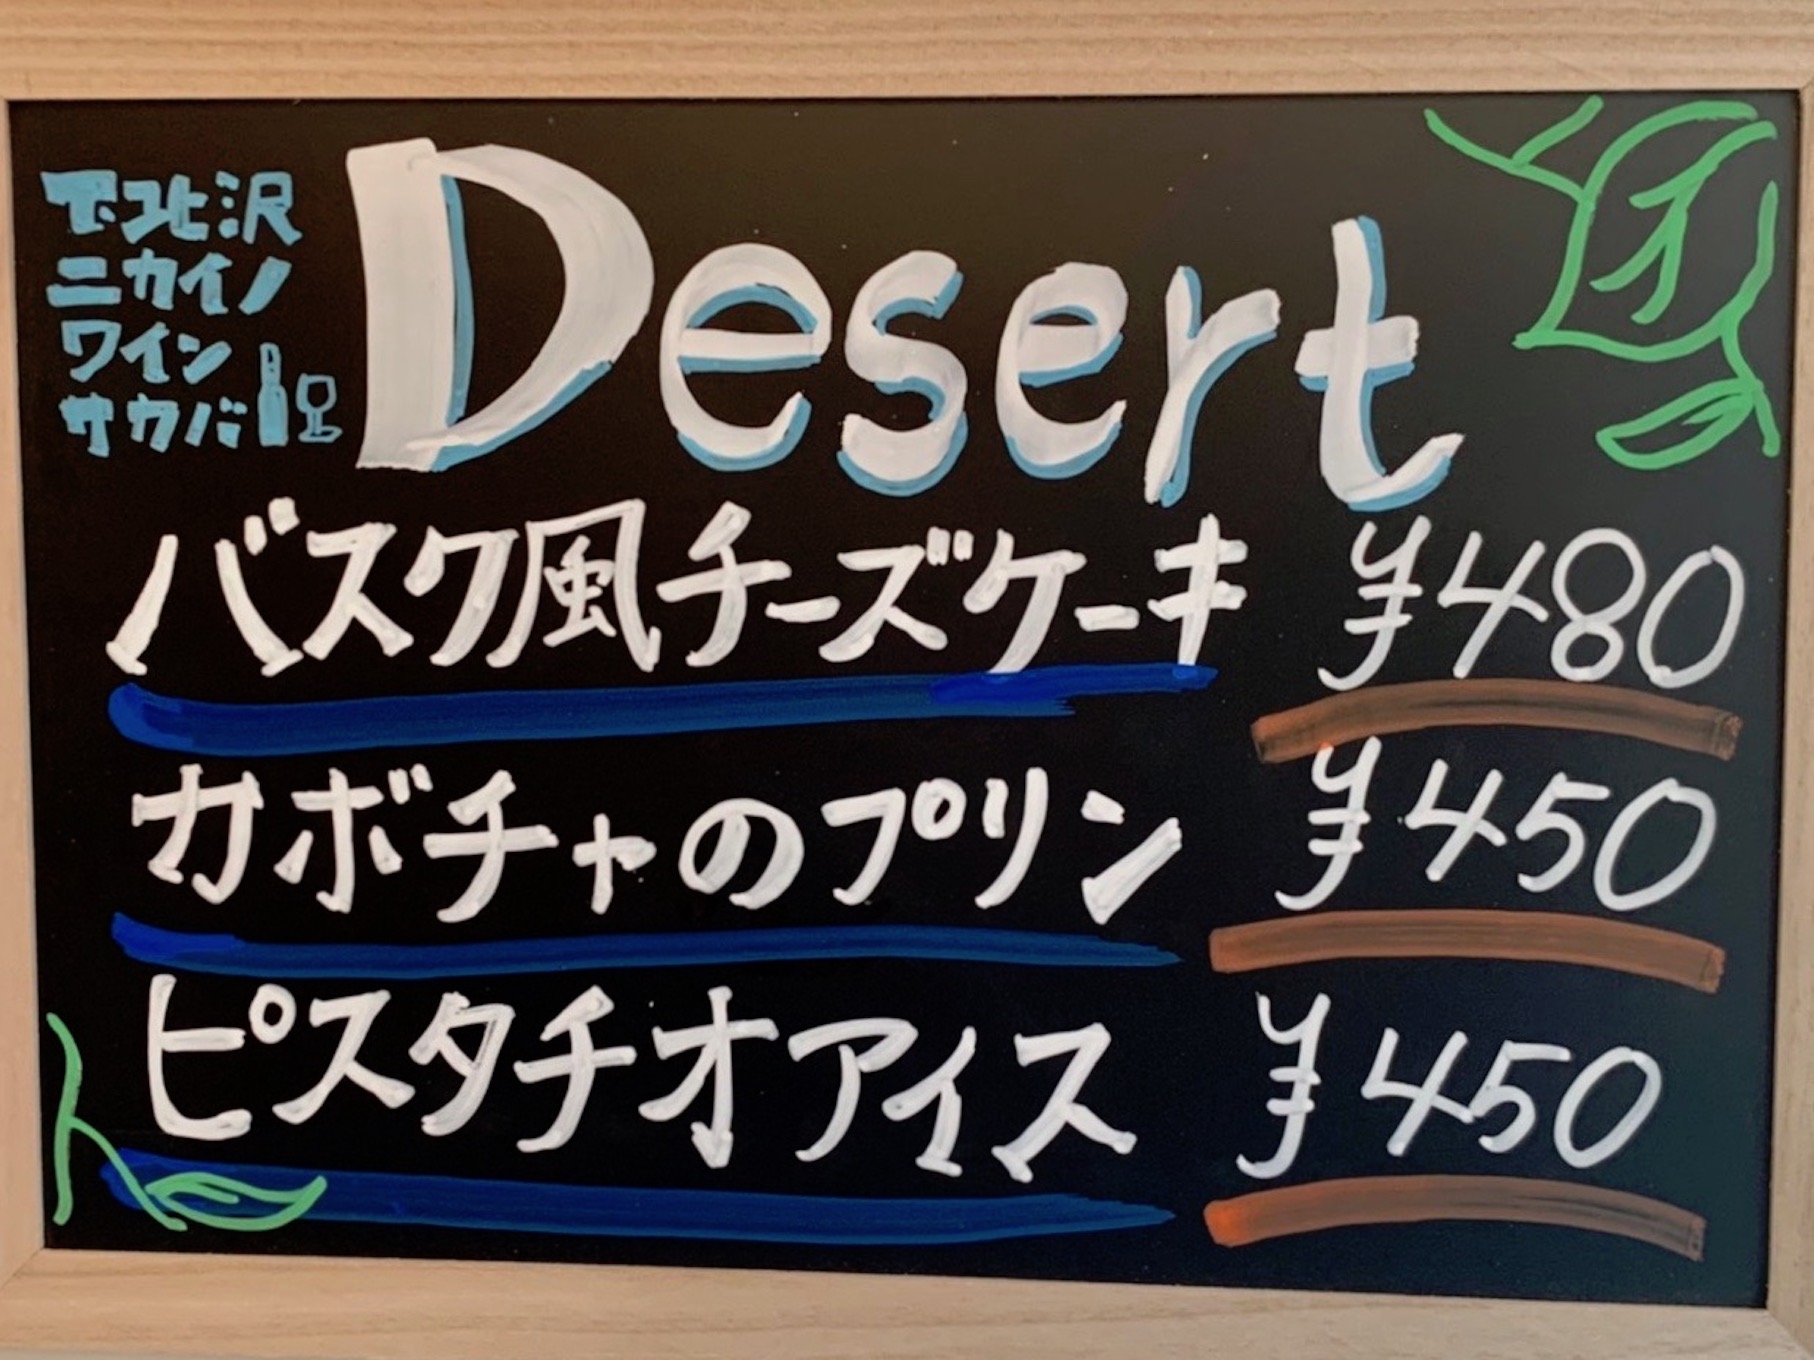 下北沢
ニカイノ
ワイン
サカバ
Desert
バスク風チーズケーキ ¥480
カボチャのプリン ¥450
ピスタチオアイス ¥450